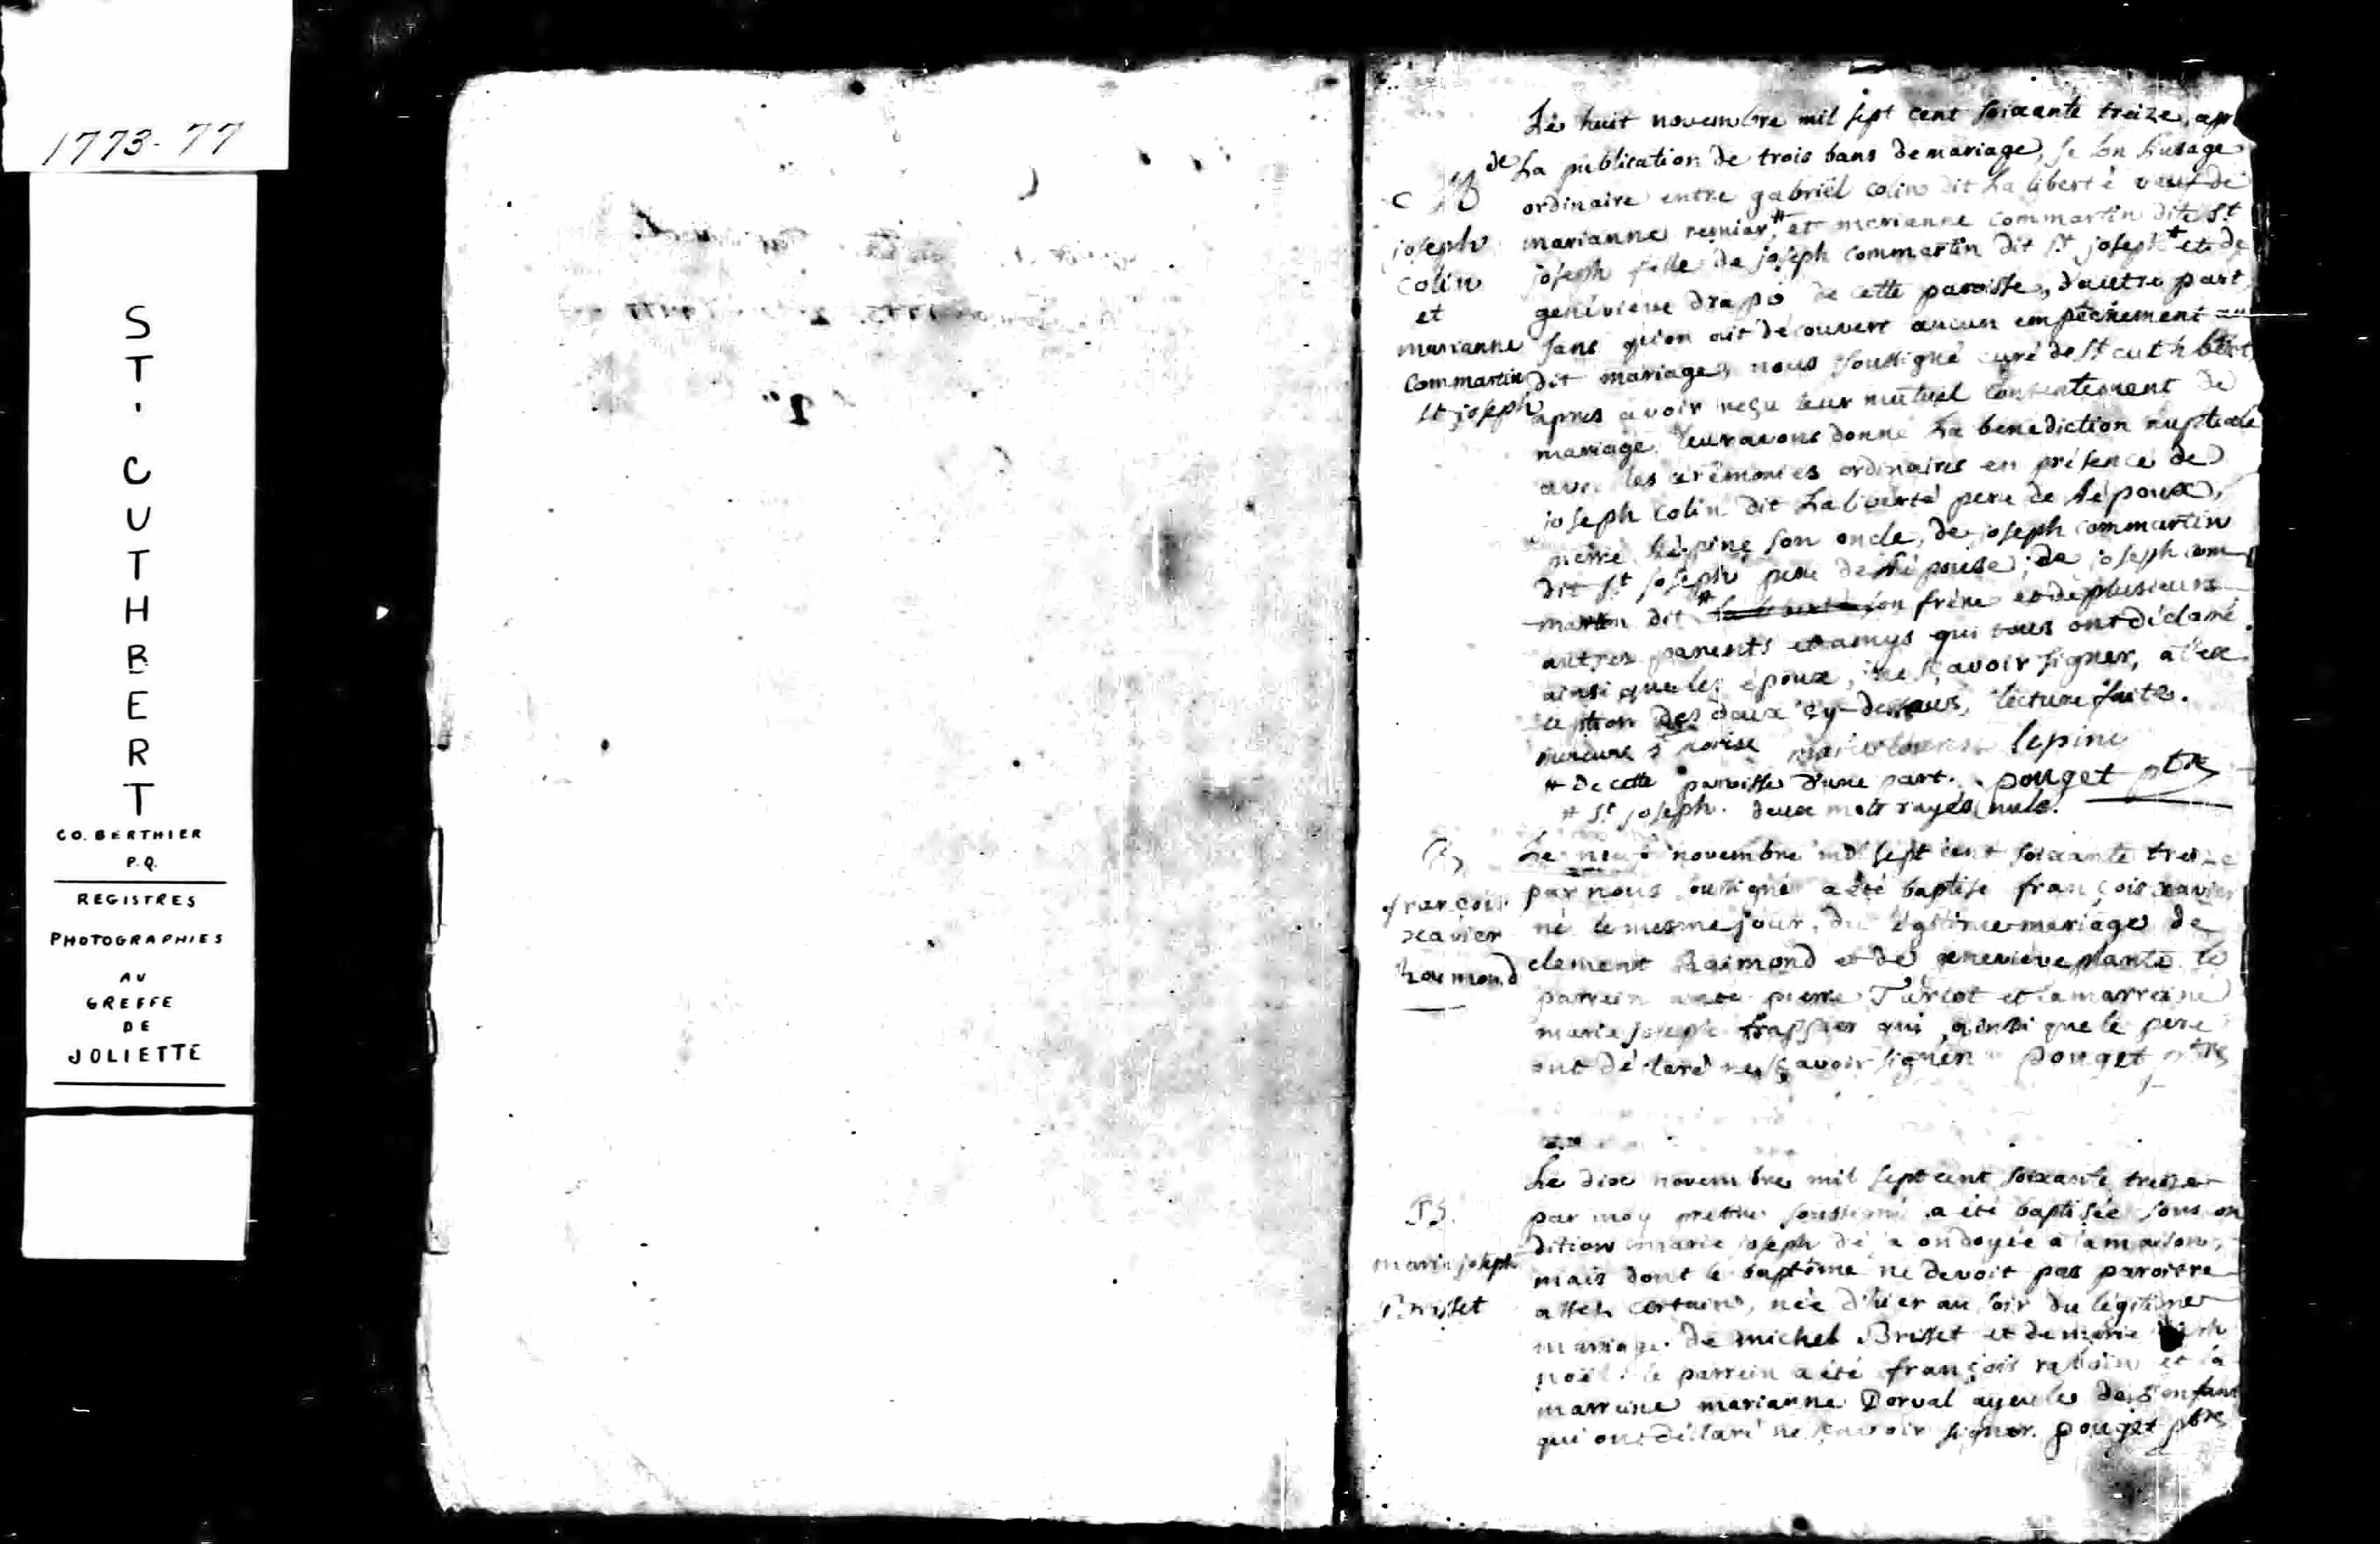 1773-77
S
T
'
C
U
T
H
B
E
R
T
CO. BERTHIER
P.Q.
REGISTRES
PHOTOGRAPHIES
AU
GREFFE
DE
JOLIETTE
joseph
Colin
et
marianne
Commartin
st joseph
Le huit novembre mil sept cent soixante treize, apr
de La publication de trois bans de mariage, selon L'usage
ordinaire entre gabriël colin dit La liberté veuf de
marianne # et marianne commartin dite St
joseph fille de joseph commartin dit St joseph + et de
geneviéve drapo de cette paroisse, d'autre part,
sans qu'on ait découvert aucun empêchement au
dit mariage, nous soussigné curé de St cuthbert,
apres avoir reçu leur mutuel consentement de
mariage leur avons donné La benediction nuptiale
avec les cerémonies ordinaires en présence de
joseph colin dit La liberté pere de L'époux,
pierre Lépine son oncle, de joseph commartin
dit St joseph pere de L'épouse; de joseph com
martin dit # son frère et de plusieurs
autres parents et amys qui tous ont déclaré
ainsi que les époux, ne sçavoir signer, à l'ex
ception des deux cy-dessus, lecture faite.
lepine
# De cette paroisse d'une part. pouget ptre
# St joseph. deux mots rayés nuls.
françois
xavier
Raimond
Le neuf novembre mil sept cent soixante treize
par nous soussigné a été baptisé françois xavier
né le mesme jour, du légitime mariage de
clement Raimond et de genevieve plante le
parrein a été pierre Turcot et la marreine
marie joseph frappier qui, ainsi que le pere
ont déclaré ne sçavoir signer pouget ptre
B.
marie joseph
Brisset
Le dix novembre mil sept cent soixante treize
par moy prettre soussigné a été baptisée sous con
dition marie joseph déja ondoyée à la maison,
mais dont le baptême ne devoit pas paroitre
assez certain, née d'hier au soir du légitime
mariage de michel Brisset et de marie
noël. le parrein a été françois rabouin et la
marreine marianne Dorval ayeule de l'enfant
qui ont déclaré ne sçavoir signer. pouget ptre